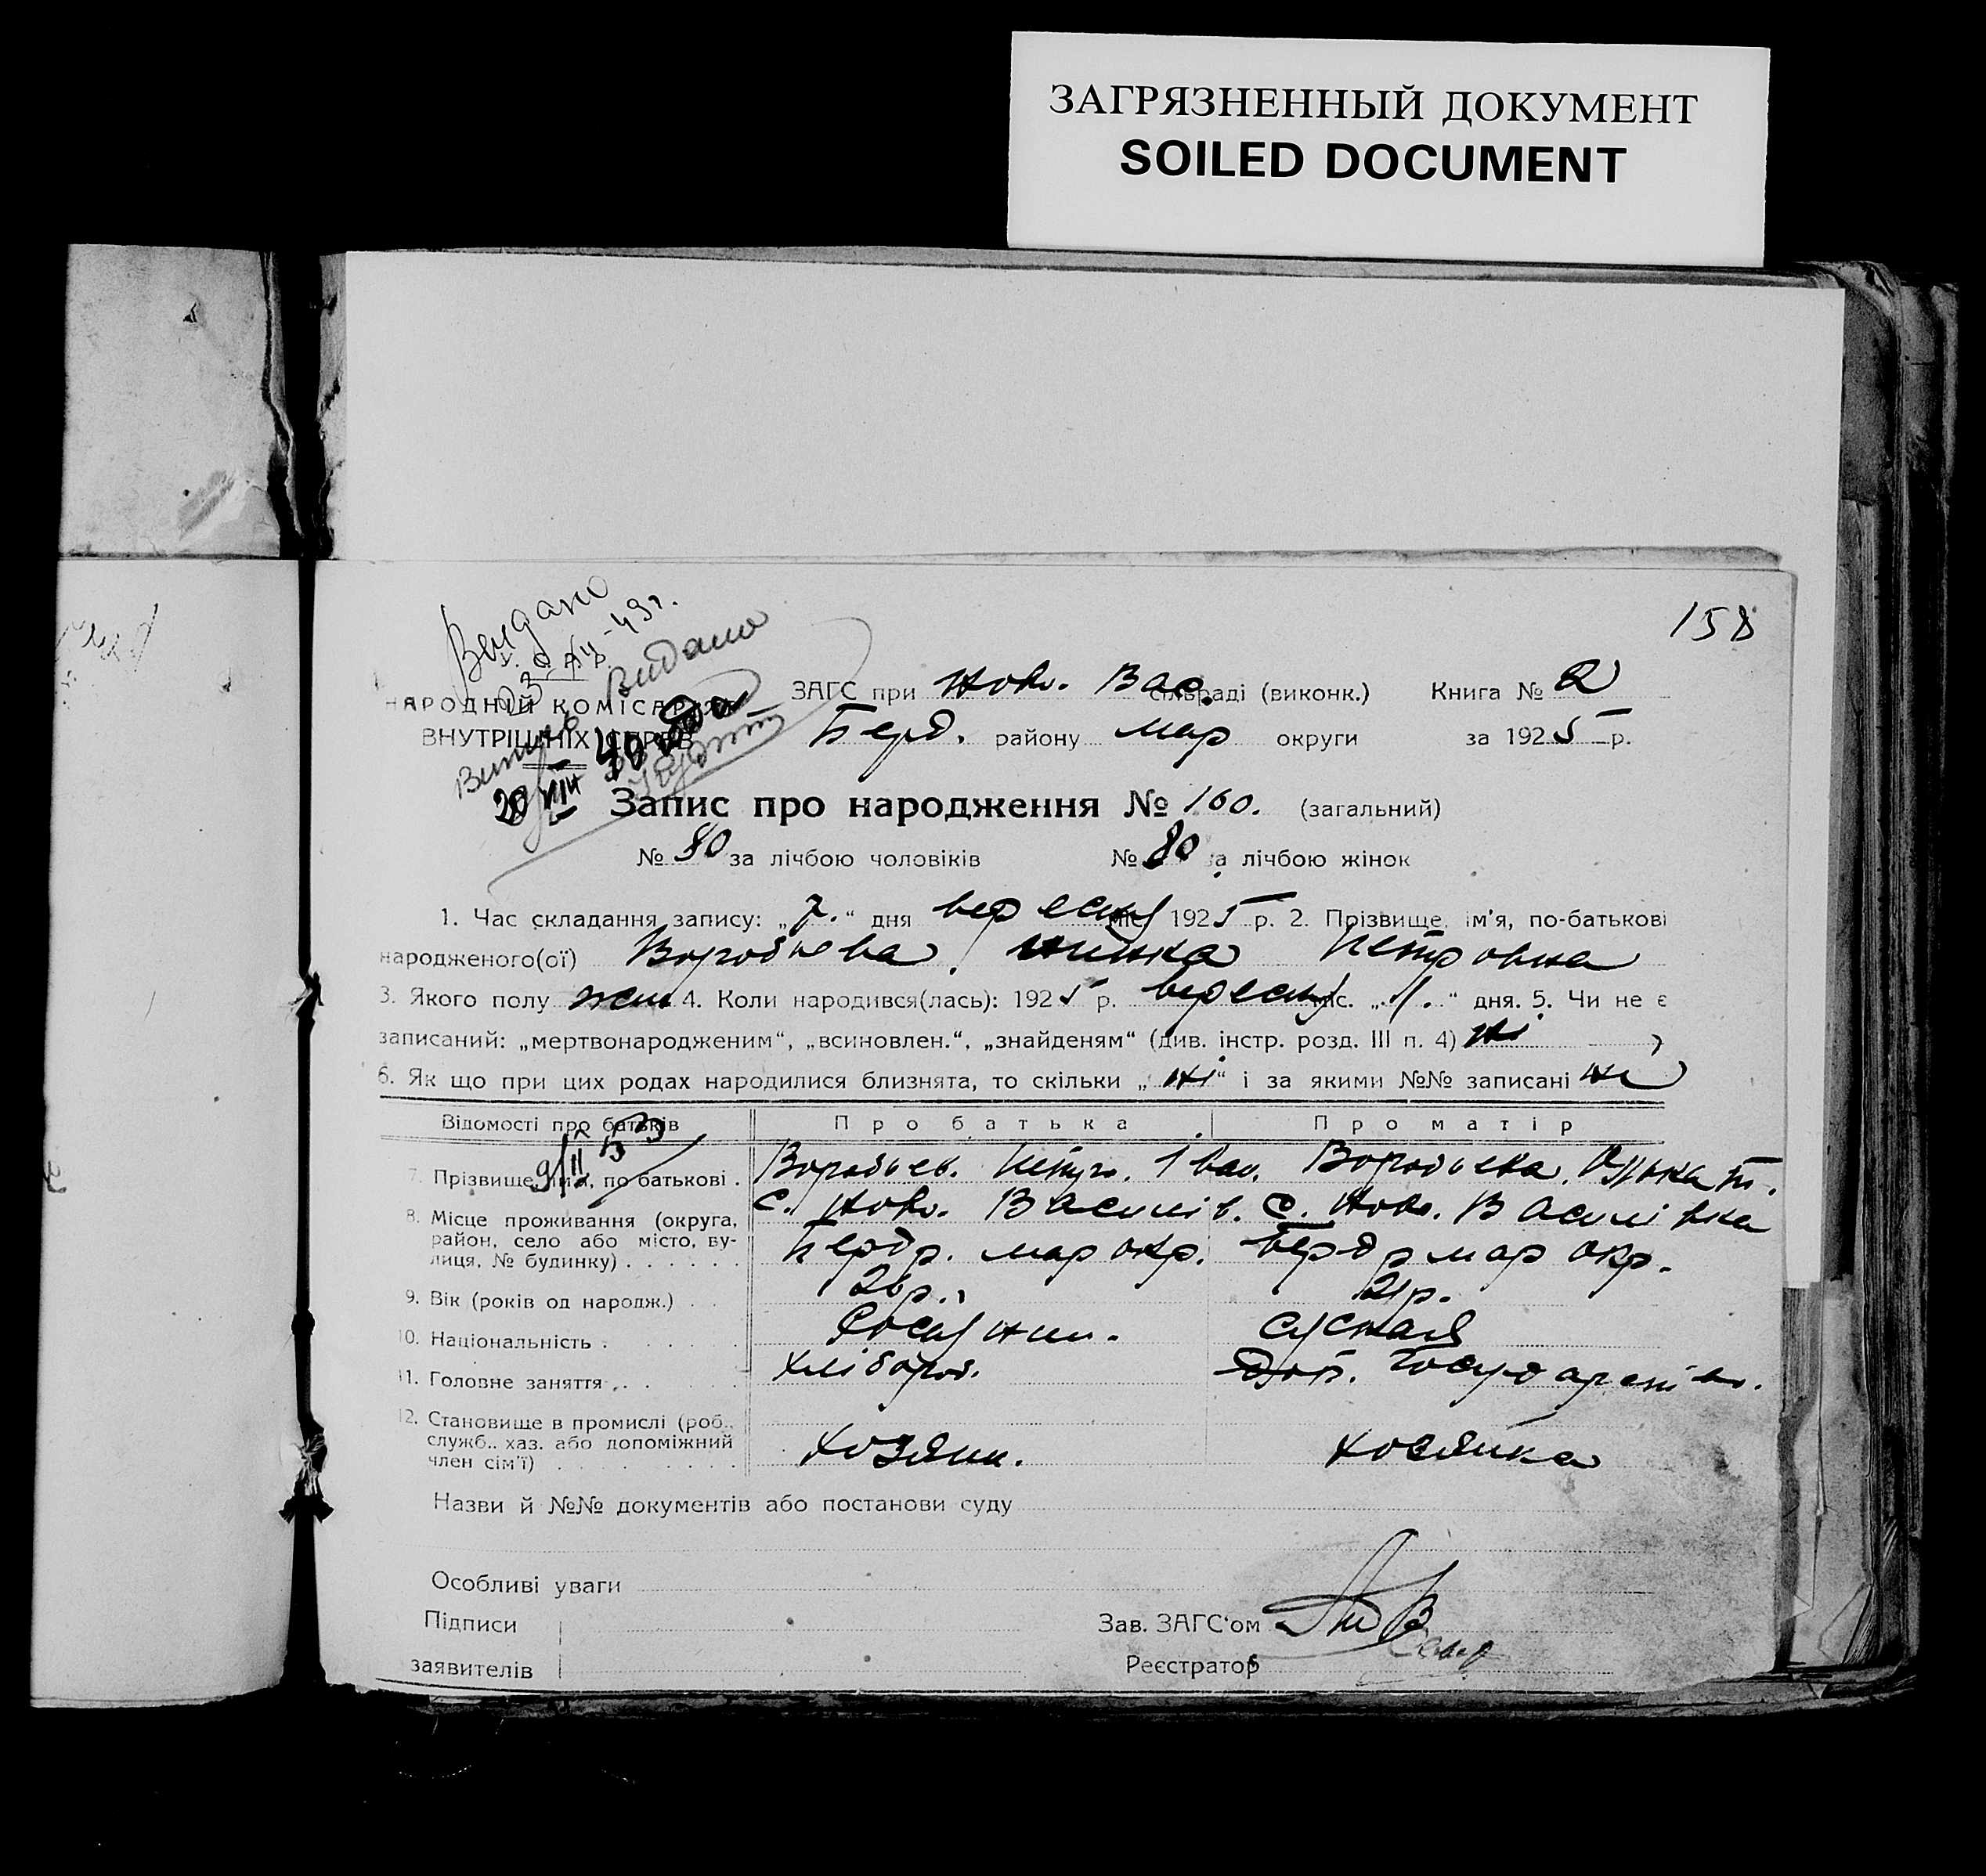 ЗАГРЯЗНЕННЫЙ ДОКУМЕНТ
SOILED DOCUMENT
158
Видано
Видано
НАРОДНІЙ КОМІСАРІЯТ
ВНУТРІШНІХ СПРАВ
ЗАГС при Ново. Вас. сільраді (виконк.) Книга № 2
Берд. району мар округи за 1925 р.
Запис про народження № 160. (загальний)
№ 80 за лічбою чоловіків № 80 за лічбою жінок
1. Час складання запису: „7.“ дня вересня міс. 1925 р. 2. Прізвище, ім'я, по-батькові
народженого(ої) Воробьева, Нинка Петровна
3. Якого полу жен 4. Коли народився(лась): 1925 р. вересня міс. „1.“ дня. 5. Чи не є
записаний: „мертвонародженим“, „всиновлен.“, „знайденям“ (див. інстр. розд. III п. 4) ні )
6. Як що при цих родах народилися близнята, то скільки „ні“ і за якими №№ записані ні
Відомості про батьків Про батька Про матір
9/II 53
7. Прізвище, ім'я, по батькові . Воробьев. Петро. Іван. Воробьева.
8. Місце проживання (округа, район, село або місто, вулиця, № будинку)
с. Ново. Василів. с. Ново. Василівка
Берд р. мар окр. Берд р мар окр.
9. Вік (років од народж.) 26 р. 21 р.
10. Національність
11. Головне заняття хлібороб. Дом.
12. Становище в промислі (роб., служб., хаз. або допоміжний член сім'ї) хозяин. хозяйка
Назви й №№ документів або постанови суду
Особливі уваги
Підписи Зав. ЗАГС'ом
заявителів Реєстратор